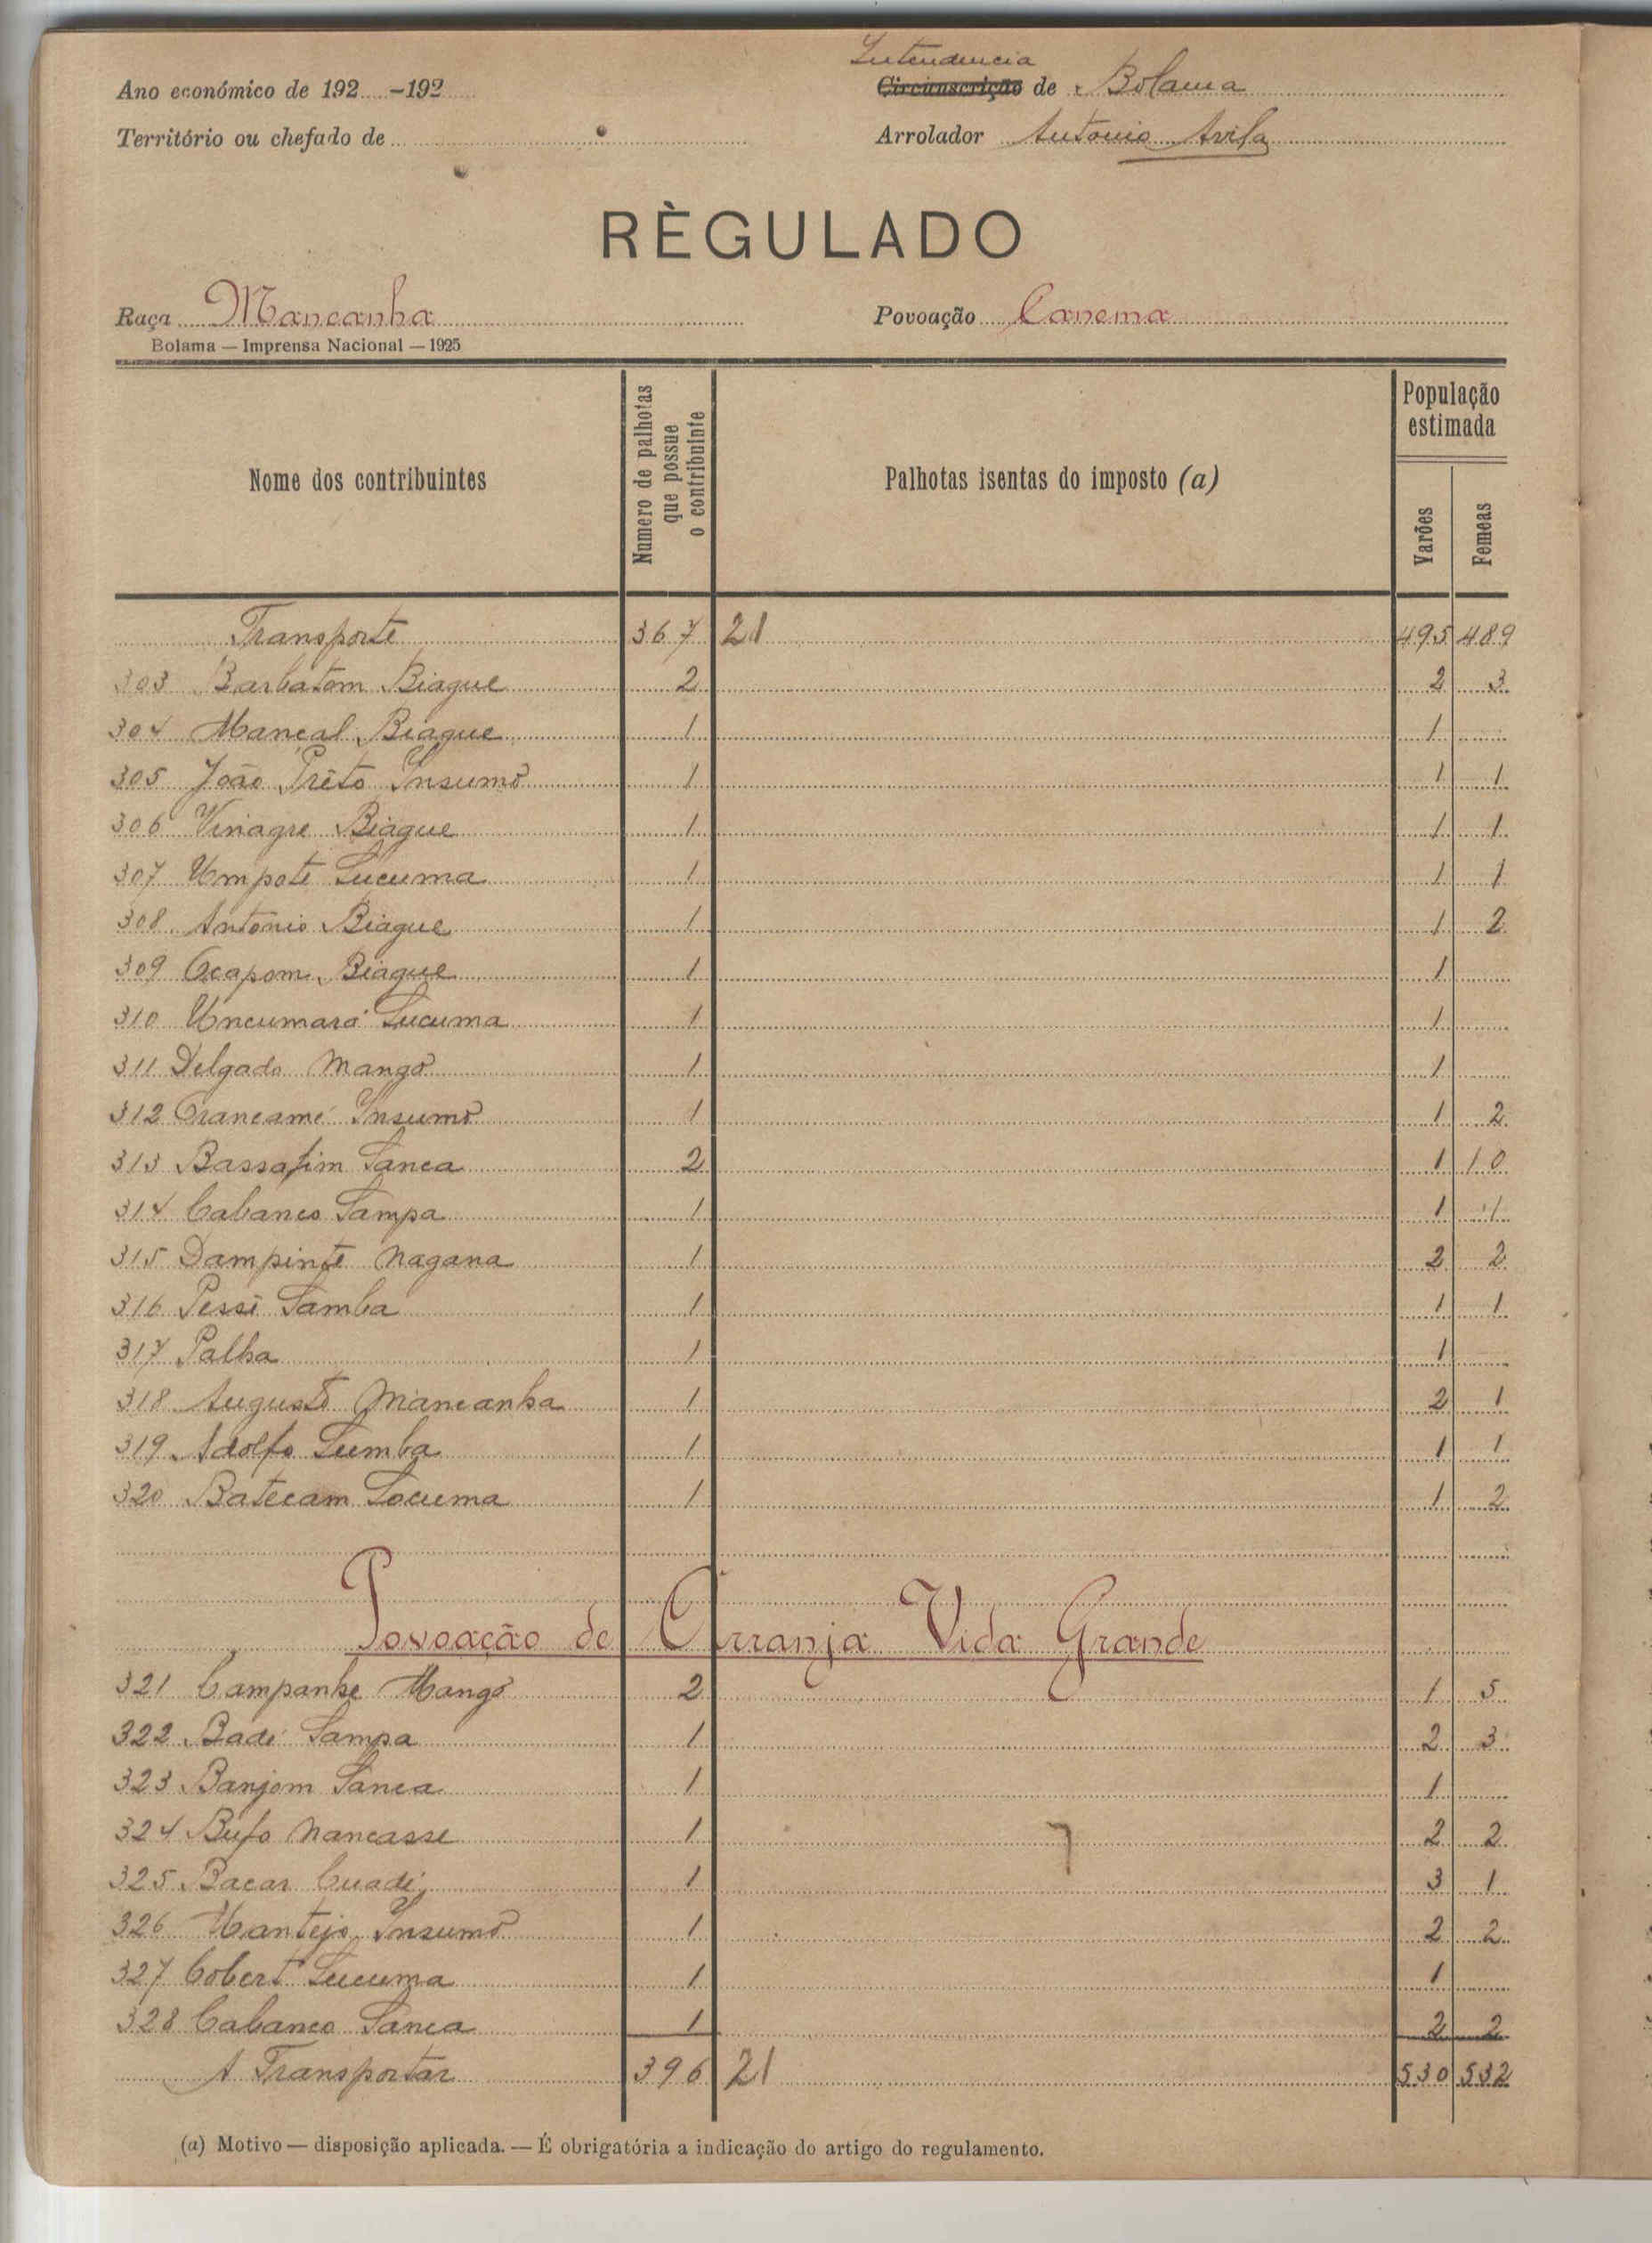 Intendencia
Ano económico de 192 -192 Circunscrição de Bolama
Território ou chefado de Arrolador Antonio Avila
RÈGULADO
Raça Mancanha Povoação Canema
Bolama — Imprensa Nacional — 1925
Nome dos contribuintes Numero de palhotas que possue o contribuinte Palhotas isentas do imposto (a) População estimada Varões Femeas
Transporte 367 21 495 489
303 Barbatom Biague 2 2 3
304 Mancal Biague 1 1
305 João Prêto Insumõ 1 1 1
306 Vinagre Biague 1 1 1
307 Umpote Lucuma 1 1 1
308 Antonio Biague 1 1 2
309 Ocapom Biague 1 1
310 Uncumará Lucuma 1 1
311 Delgado Mangõ 1 1
312 Francamé Insumõ 1 1 2
313 Bassafim Sanca 2 1 10
314 Cabanco Sampa 1 1 1
315 Dampinte Nagana 1 2 2
316 Pessi Samba 1 1 1
317 Palha 1 1
318 Augusto Mancanha 1 2 1
319 Adolfo Lumba 1 1 1
320 Batecam Locuma 1 1 2
Povoação de Orranja Vida Grande
321 Campanhe Mangõ 2 1 5
322 Badé Sampa 1 2 3
323 Banjom Sanca 1 1
324 Bufo Nancasse 1 2 2
325 Bacar Cuadi 1 3 1
326 Mantejo Insumõ 1 2 2
327 Cobert Lucuma 1 1
328 Cabanco Sanca 1 2 2
A Transportar 396 21 530 532
(a) Motivo — disposição aplicada. — É obrigatória a indicação do artigo do regulamento.